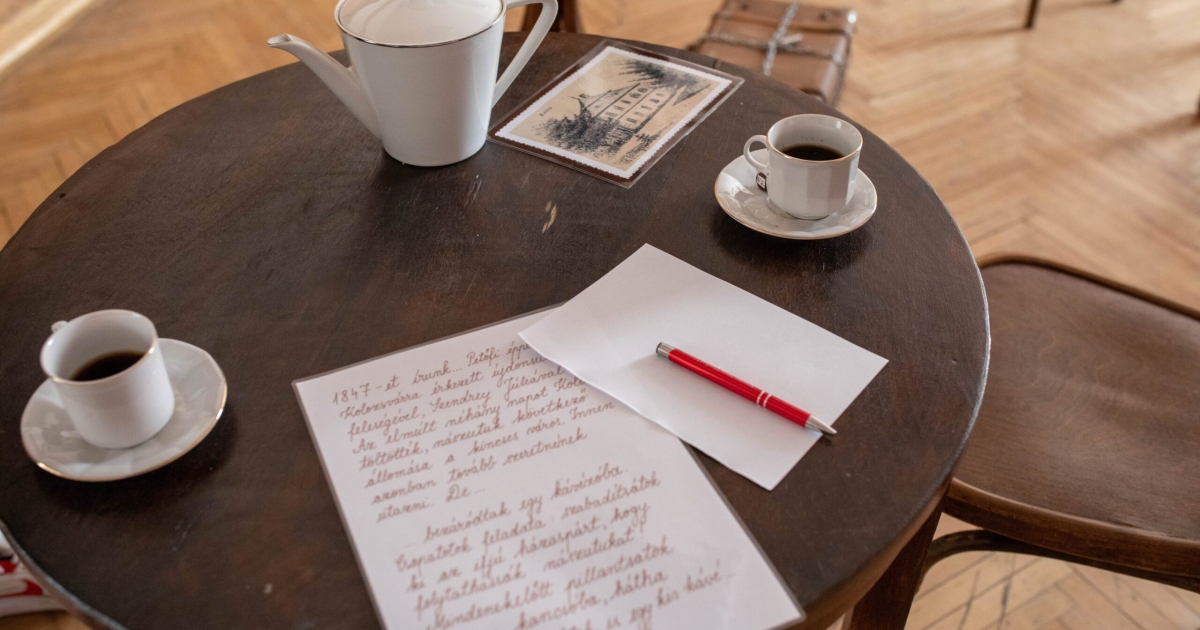 1847-et írunk... Petőfi épp
Kolozsvárra érkezett újdonsült
feleségével, Szendrey Júliával.
Az elmúlt néhány napot Kolt
töltötték, nászútuk következő
állomása a kincses város. Innen
azonban tovább szeretnének
utazni. De...
bezáródtak egy kávézóba.
Csapatotok feladata szabadítsátok
ki az ifjú házaspárt, hogy
folytathassák nászútukat!
Mindenekelőtt pillantsatok
kancsóba, hátha
is egy kis kávé...